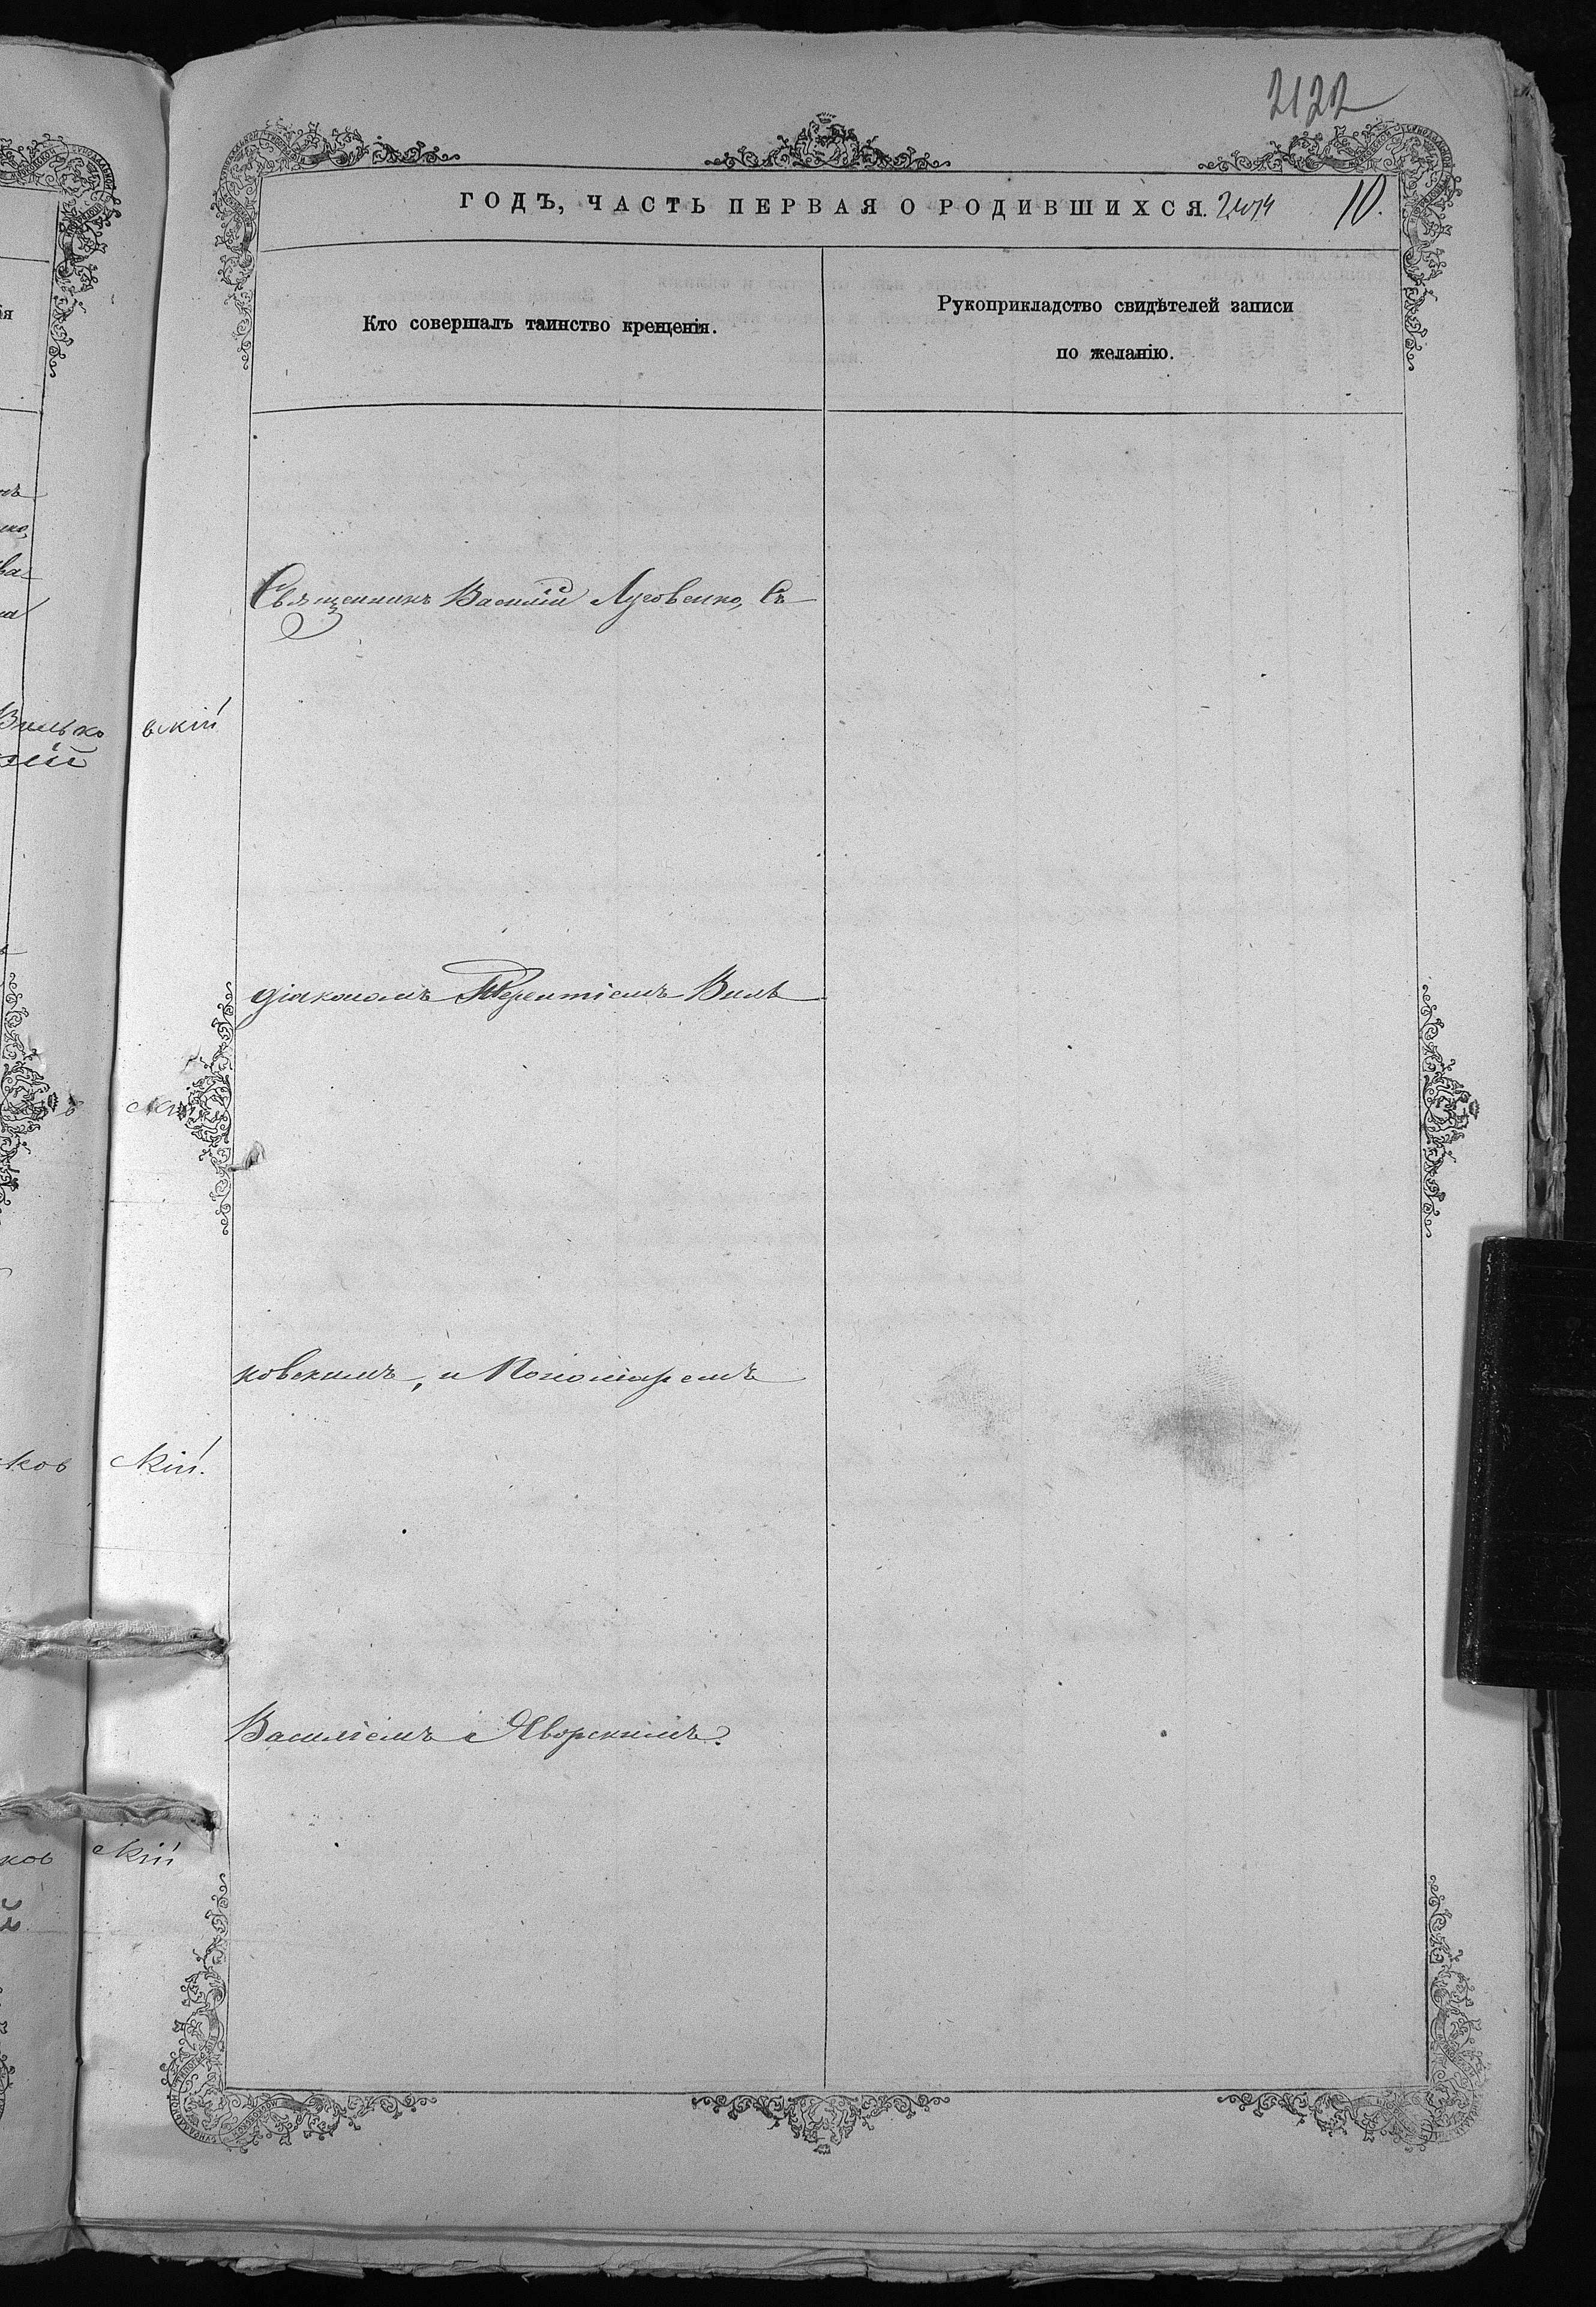 2122
ГОДЪ, ЧАСТЬ ПЕРВАЯ О РОДИВШИХСЯ.
10.
Кто совершалъ таинство крещенія.
Рукоприкладство свидѣтелей записи
по желанію.
Священникъ Василій Луговенко, Съ
вскій
діакономъ Терентіемъ Виль
ковскимъ, и Пономаремъ
ков скій.
Василіемъ Яворскимъ.
ков скій